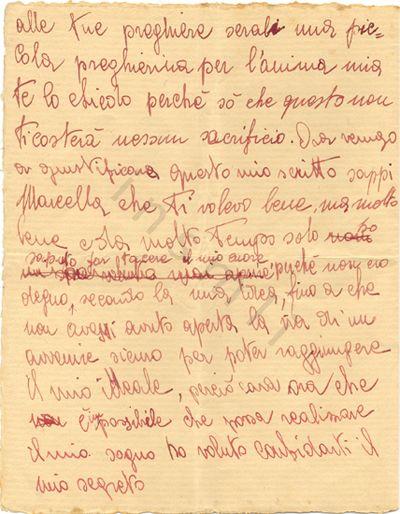 alle tue preghiere serali una pic-
cola preghierina per l'anima mia
te lo chiedo perché sò che questo non
ti costerà nessun sacrificio. Ora vengo
a giustificare questo mio scritto sappi
Marcella che ti volevo bene, ma molto
bene e da molto tempo solo ho
saputo far tacere il mio cuore
perché non ero
degno, secondo la mia idea, fino a che
non avessi avuto aperta la via di un
avvenire sicuro per poter raggiungere
il mio ideale, perciò cara ora che
è impossibile che possa realizzare
il mio sogno ho voluto confidarti il
mio segreto